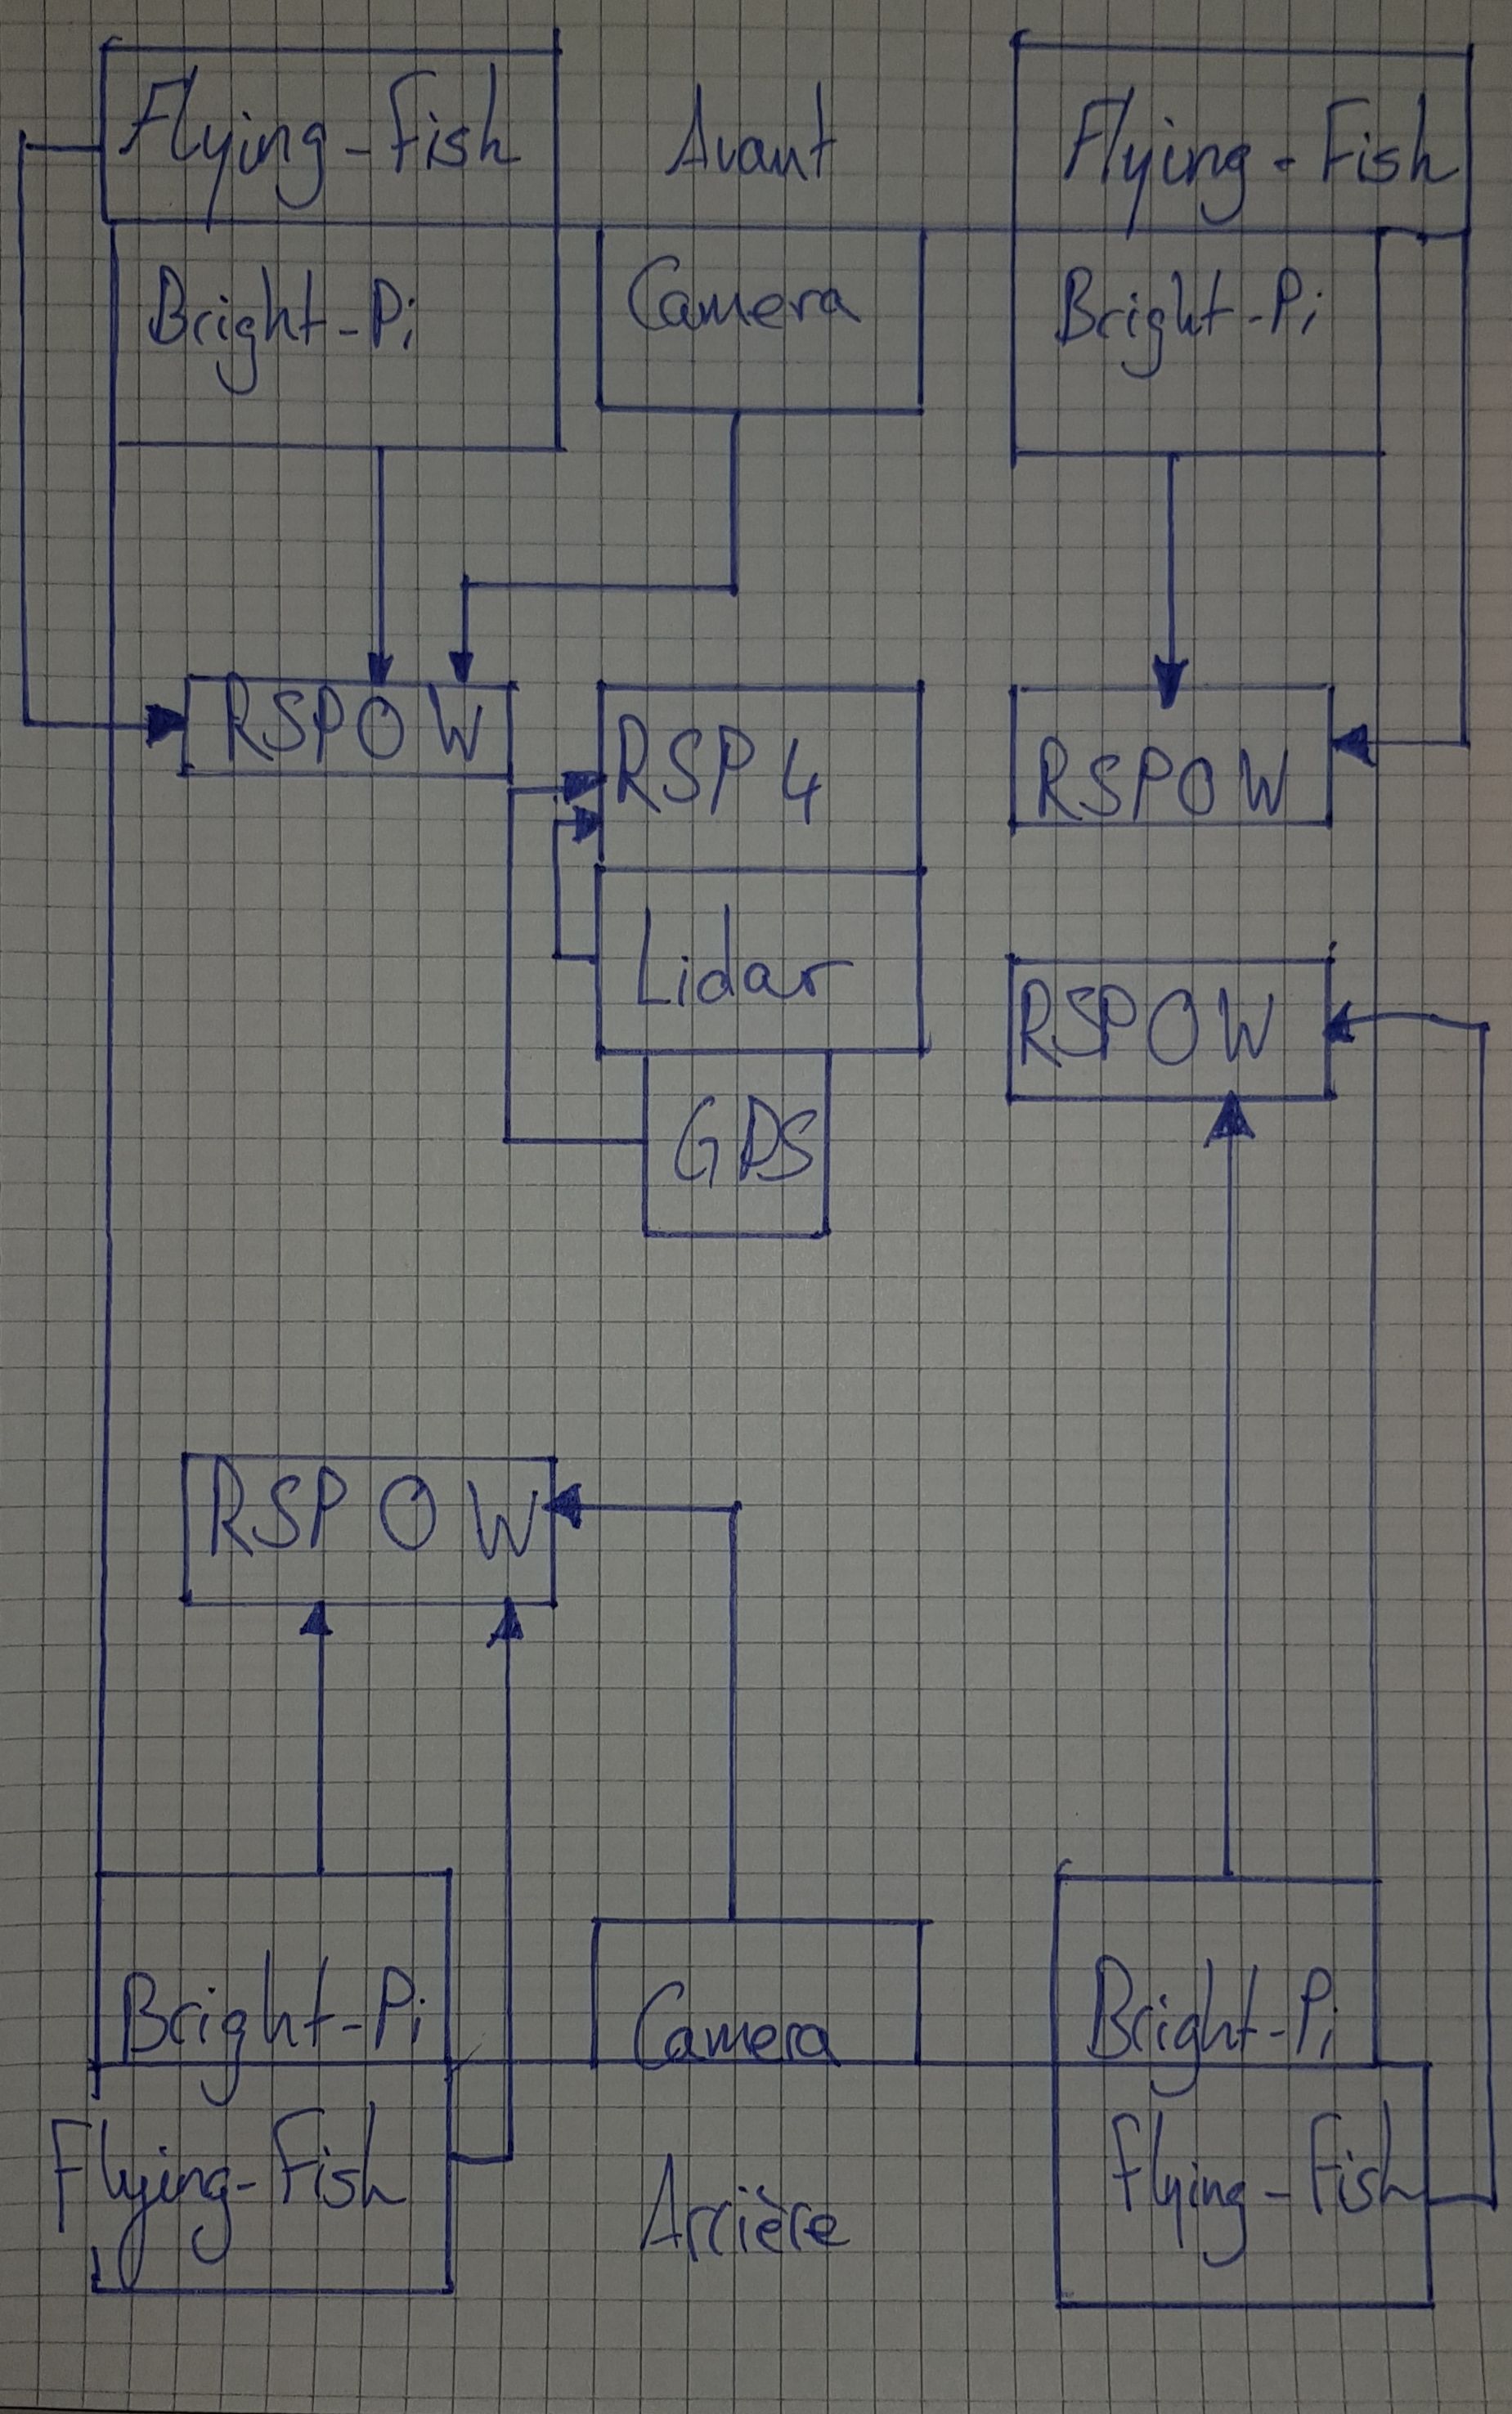 Flying-Fish
Avant
Flying-Fish
Bright-Pi
Camera
Bright-Pi
RSP0W
RSP4
RSP0W
Lidar
RSP0W
GPS
RSP0W
Bright-Pi
Camera
Bright-Pi
Flying-Fish
Arrière
Flying-Fish